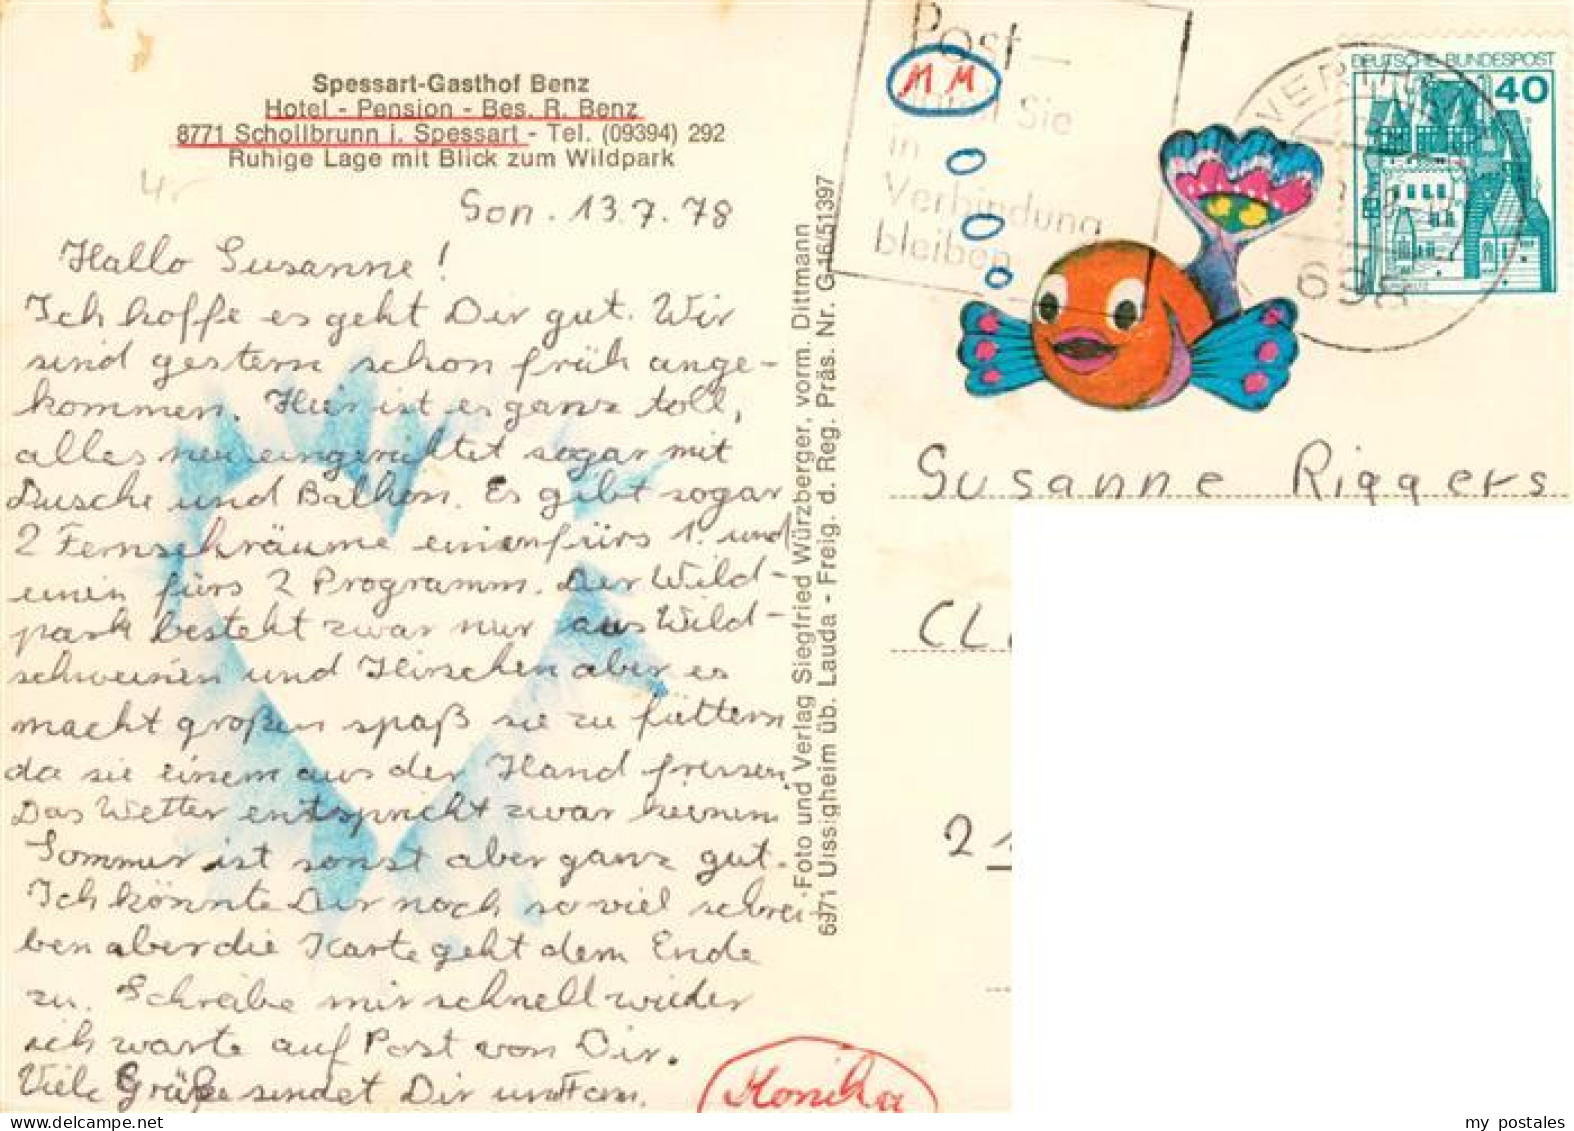 Spessart-Gasthof Benz
Hotel - Pension - Bes. R. Benz
8771 Schollbrunn i. Spessart - Tel. (09394) 292
Ruhige Lage mit Blick zum Wildpark
4,-
Son. 13.7.78
Hallo Susanne!
Ich hoffe es geht Dir gut. Wir
sind gestern schon früh ange-
kommen. Hier ist es ganz toll,
alles neu eingerichtet sogar mit
Dusche und Balkon. Es gibt sogar
2 Fernsehräume einen fürs 1. und
einen fürs 2 Programm. Der Wild-
park besteht zwar nur aus Wild-
schweinen und Hirschen aber es
macht großen spaß sie zu füttern
da sie einem aus der Hand fressen.
Das Wetter entspricht zwar keinem
Sommer ist sonst aber ganz gut.
Ich könnte Dir noch so viel schrei-
ben aber die Karte geht dem Ende
zu. Schreibe mir schnell wieder
ich warte auf Post von Dir.
Viele Grüße sendet Dir und Fam.
Monika
Foto und Verlag Siegfried Würzberger, vorm. Dittmann
6971 Uissigheim üb. Lauda - Freig. d. Reg. Präs. Nr. G 16/51397
Post -
Sie
in
Verbindung
bleiben
MM
WERTH
698
DEUTSCHE BUNDESPOST
40
Susanne Riggers
CL
2
my postales